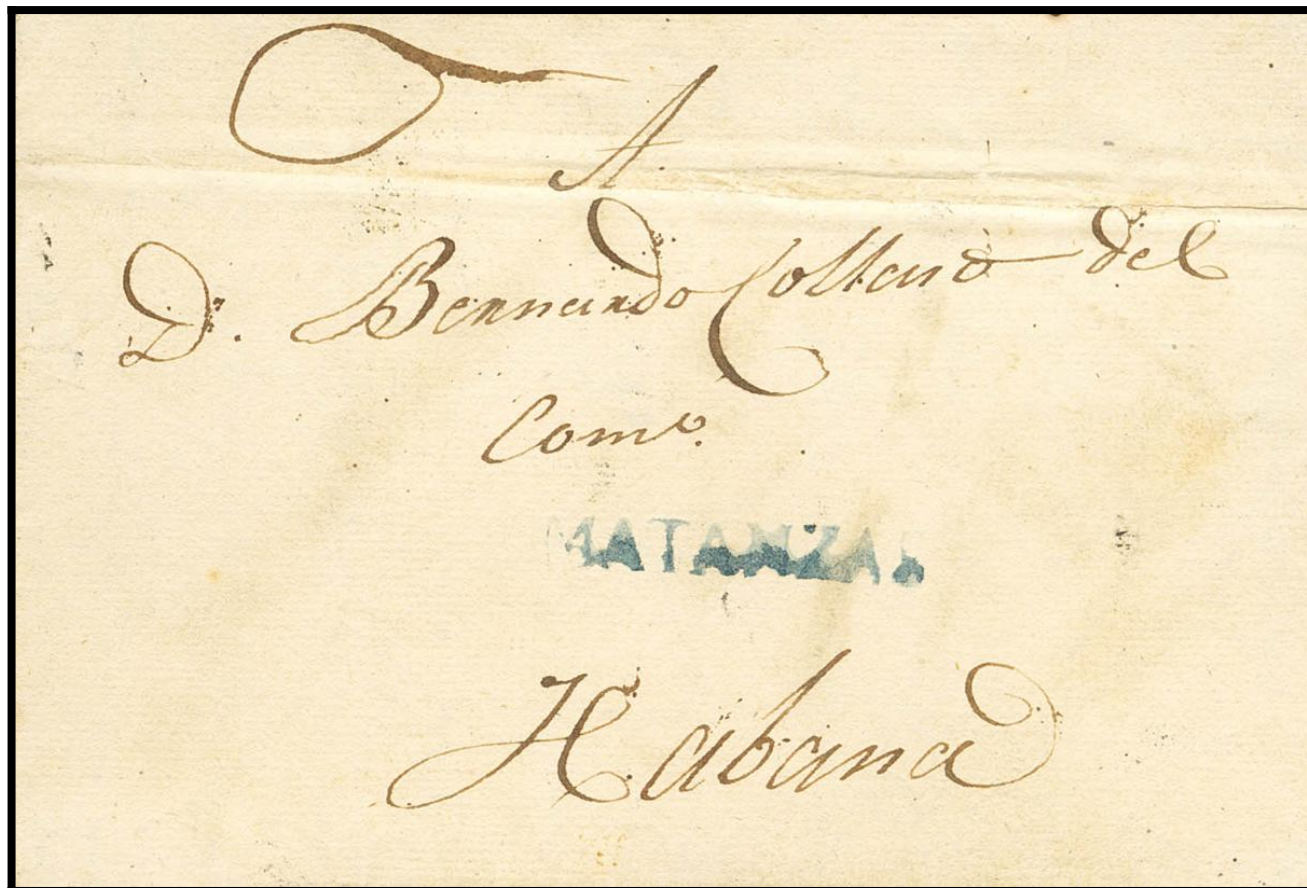 A
D. Bernardo Collasò del
Comº.
MATANZAS
Habana